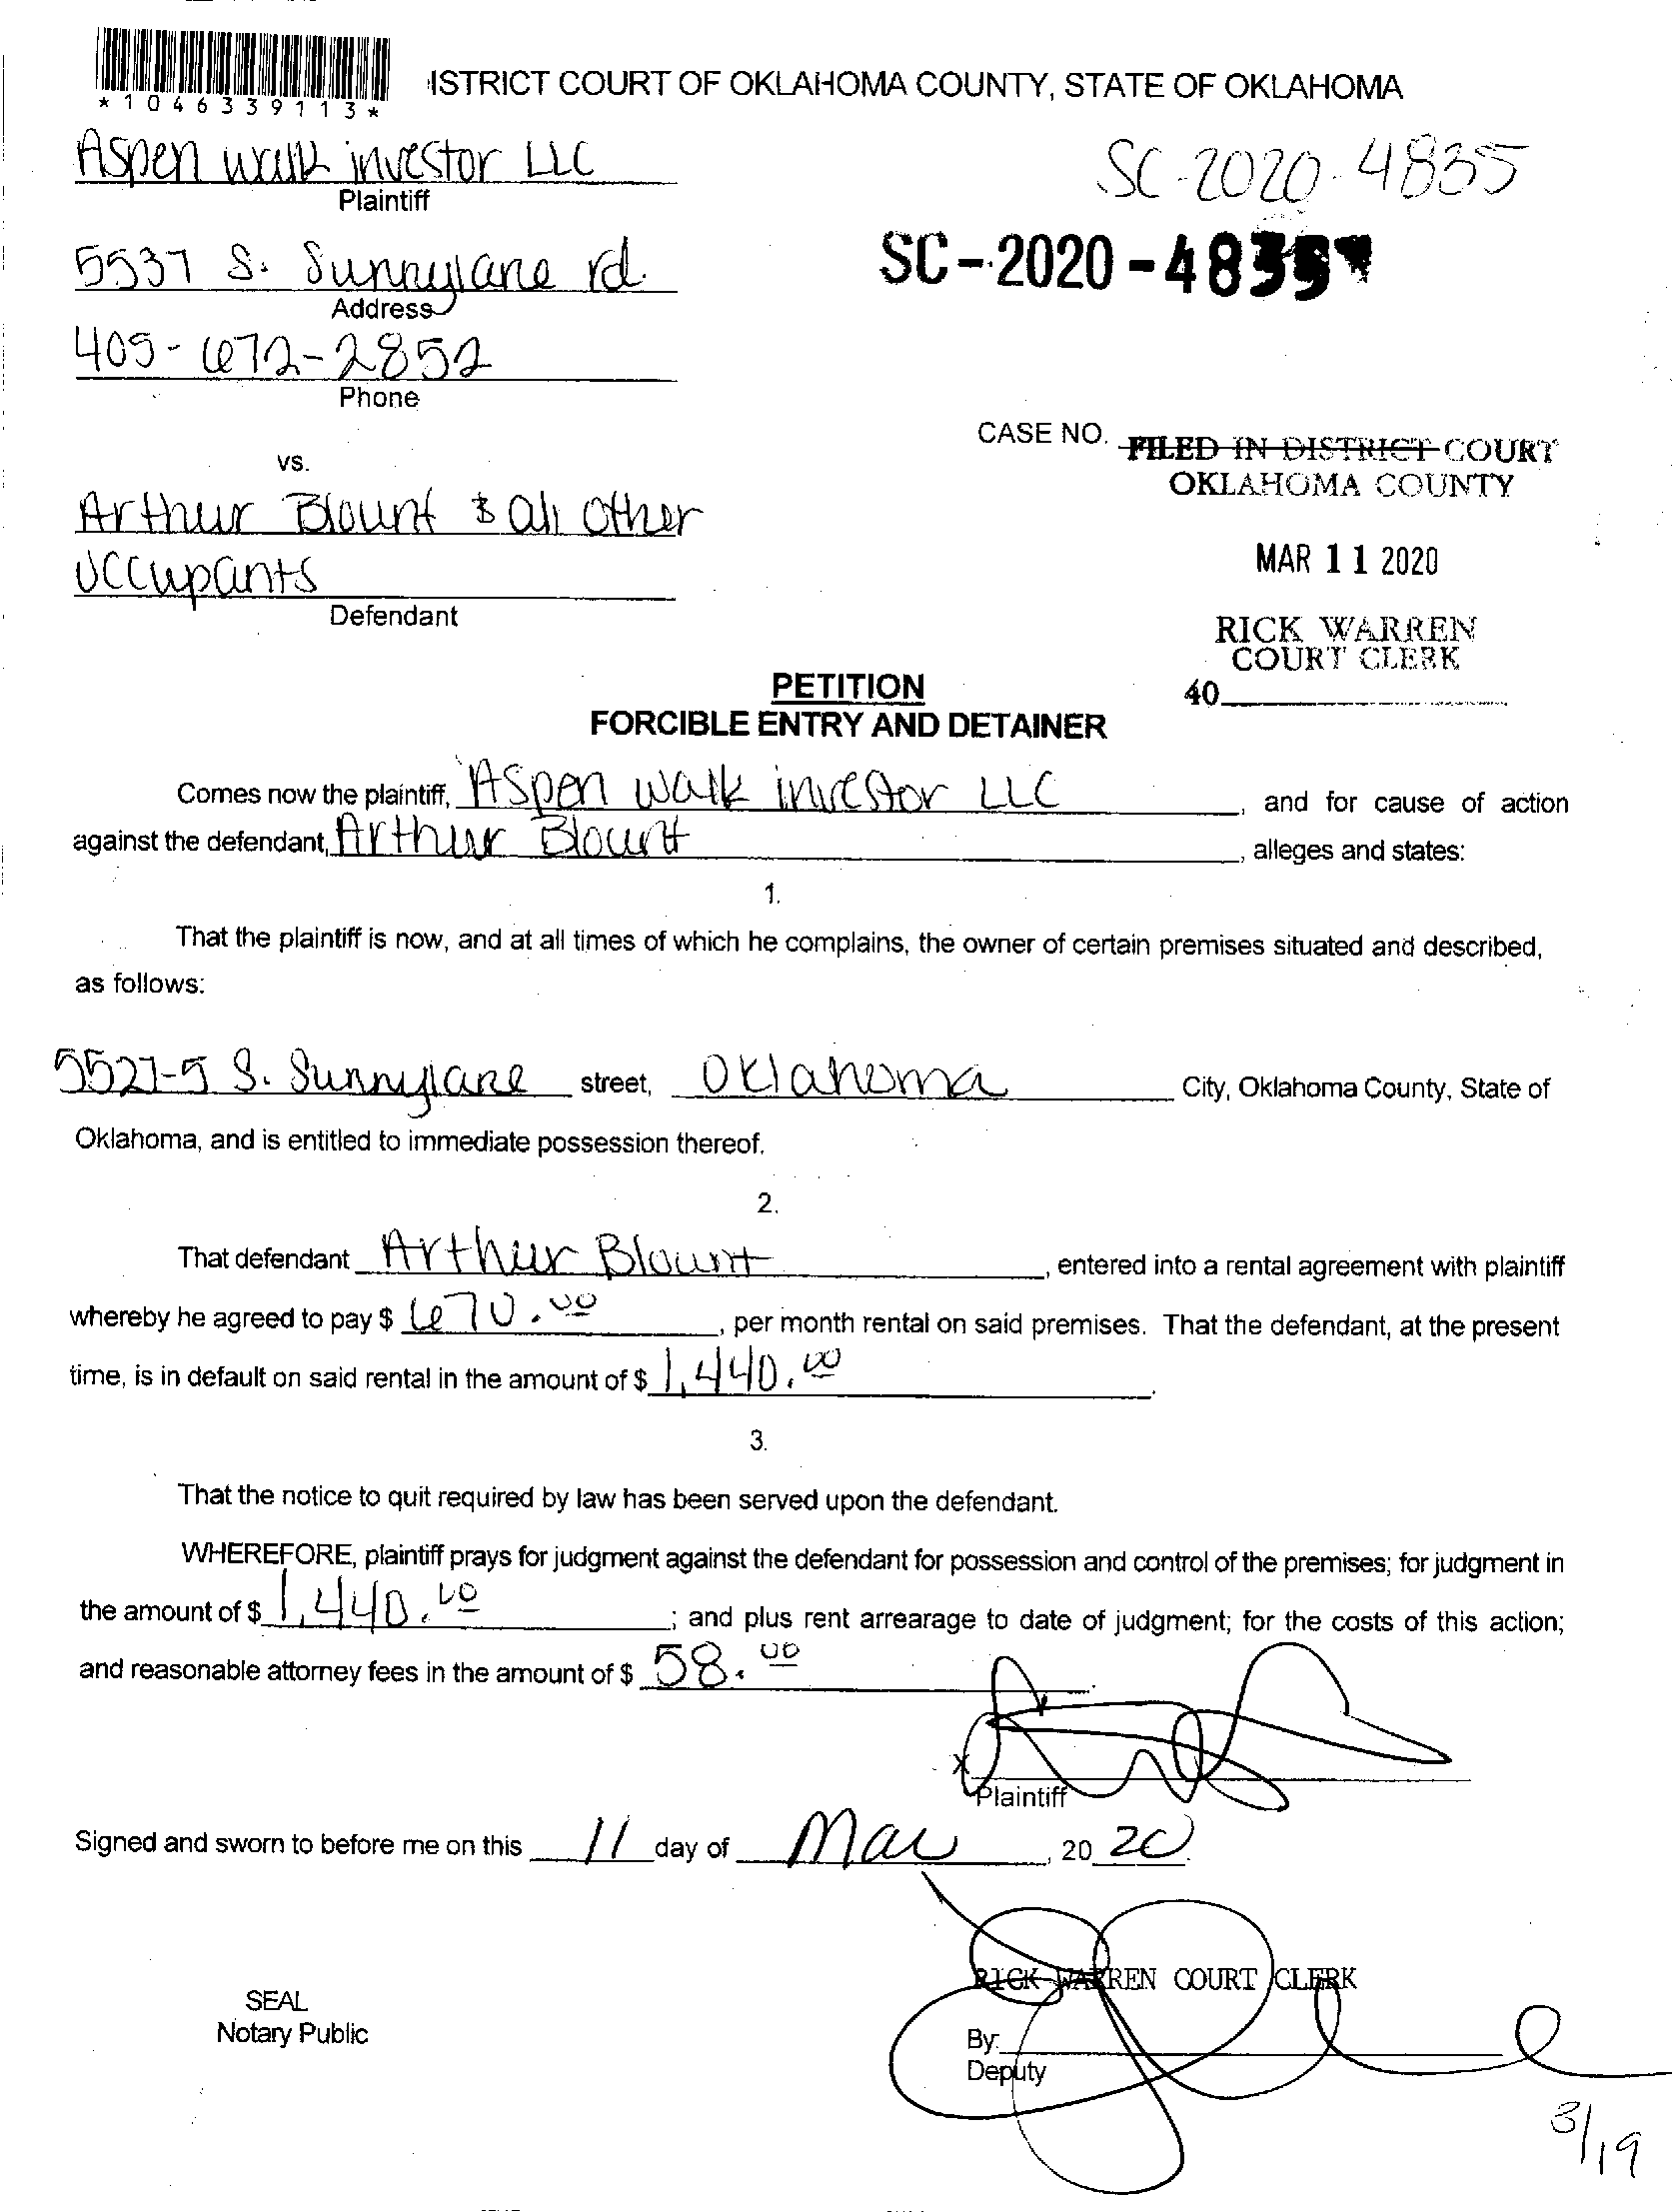 *1046339113*
ISTRICT COURT OF OKLAHOMA COUNTY, STATE OF OKLAHOMA
Aspen walk investor LLC
Plaintiff
SC-2020-4835
SC-2020-4835
5537 S. Sunnylane rd.
Address
405-672-2852
Phone
CASE NO.
FILED IN DISTRICT COURT
OKLAHOMA COUNTY
vs.
Arthur Blount & all other
occupants
Defendant
MAR 11 2020
RICK WARREN
COURT CLERK
40
PETITION
FORCIBLE ENTRY AND DETAINER
Comes now the plaintiff, Aspen walk investor LLC, and for cause of action
against the defendant, Arthur Blount, alleges and states:
1.
That the plaintiff is now, and at all times of which he complains, the owner of certain premises situated and described,
as follows:
5527-5 S. Sunnylane street, Oklahoma City, Oklahoma County, State of
Oklahoma, and is entitled to immediate possession thereof.
2.
That defendant Arthur Blount, entered into a rental agreement with plaintiff
whereby he agreed to pay $ 670.00, per month rental on said premises. That the defendant, at the present
time, is in default on said rental in the amount of $ 1,440.00.
3.
That the notice to quit required by law has been served upon the defendant.
WHEREFORE, plaintiff prays for judgment against the defendant for possession and control of the premises; for judgment in
the amount of $ 1,440.00; and plus rent arrearage to date of judgment; for the costs of this action;
and reasonable attorney fees in the amount of $ 58.00.
X
Plaintiff
Signed and sworn to before me on this 11 day of Mar, 20 20.
RICK WARREN COURT CLERK
SEAL
Notary Public
By:
Deputy
3/19